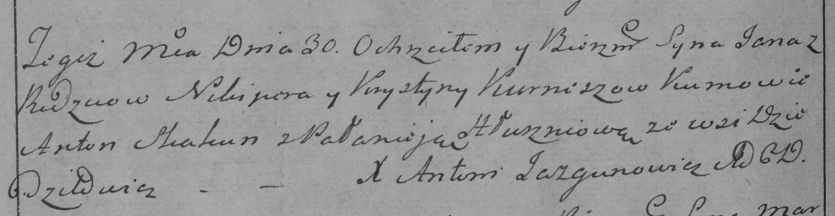 Tegiż Mca Dnia 30. Ochrzciłem y Bierzm Syna Jana z
Rodzicow Nikipera y Krystyny Kurneszow Kumowie
Anton Skakun z Pałanieją Hłuszniową ze wsi Dzie
dziłowicz - - X Antoni Jazgunowicz